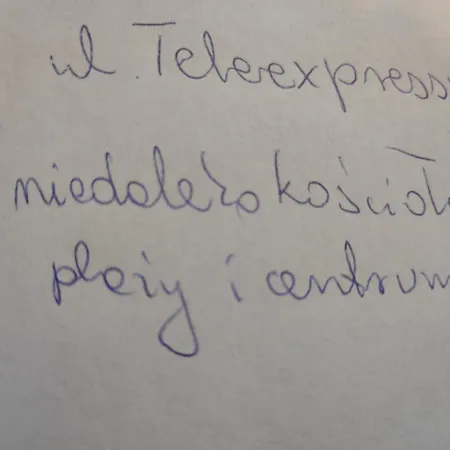 ul. Teleexpress
niedaleko kościoł
plaży i centrum